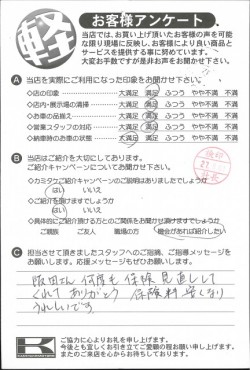 軽
お客様アンケート
当店では、お買い上げ頂いたお客様の声を可能
な限り現場に反映し、お客様により良い商品と
サービスを提供する事に努めています。
大変お手数ですが是非お声をお聞かせ下さい。
A 当店を実際にご利用になった印象をお聞かせ下さい。
◇店の印象 大満足 満足 ふつう やや不満 不満
◇店内・展示場の清掃 大満足 満足 ふつう やや不満 不満
◇お車の品揃え 大満足 満足 ふつう やや不満 不満
◇営業スタッフの対応 大満足 満足 ふつう やや不満 不満
◇納車時のお車の状態 大満足 満足 ふつう やや不満 不満
B 当店はご紹介を大切にしております。
ご紹介キャンペーンについてお聞かせ下さい。
◇カミタケご紹介キャンペーンのご説明はありましたでしょうか
はい いいえ
◇ご紹介を頂けますでしょうか
はい いいえ
◇具体的にご紹介頂ける方とのご関係をお聞かせ頂けますでしょうか
ご親族 ご友人 職場の方 機会があれば紹介したい
C 担当させて頂きましたスタッフへのご指摘、ご指導メッセージを
お願いします。応援メッセージもぜひお願いします。
阪田さん 何度も 保険 見直しして
くれて ありがとう 保険料 安くなり
うれしいです
K
ご協力に心よりお礼を申し上げます。
今後とも宜しくお引き立てご愛顧の程お願い申し上げます。
またのご来店を心からお待ちしております。